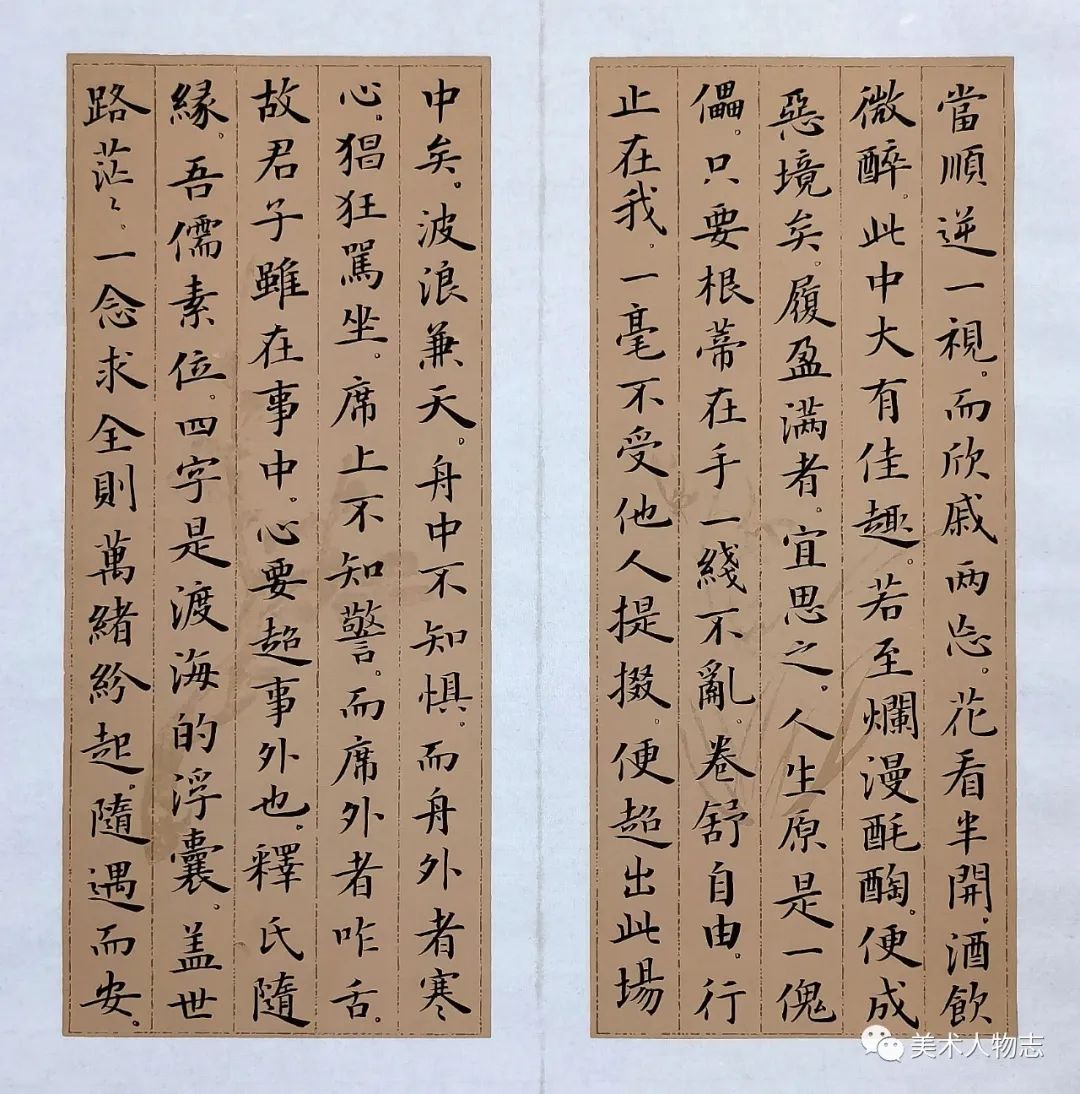 當順逆一視。而欣戚两忘。花看半開。酒飲
微醉。此中大有佳趣。若至爛漫酕醄。便成
惡境矣。履盈满者。宜思之。人生原是一傀
儡。只要根蒂在手一綫不亂。卷舒自由。行
止在我。一毫不受他人提掇。便超出此場
中矣。波浪兼天。舟中不知惧。而舟外者寒
心。猖狂駡坐。席上不知警。而席外者咋舌。
故君子雖在事中。心要超事外也。釋氏隨
緣。吾儒素位。四字是渡海的浮囊。盖世
路茫〻。一念求全則萬緒紛起。隨遇而安。
美术人物志